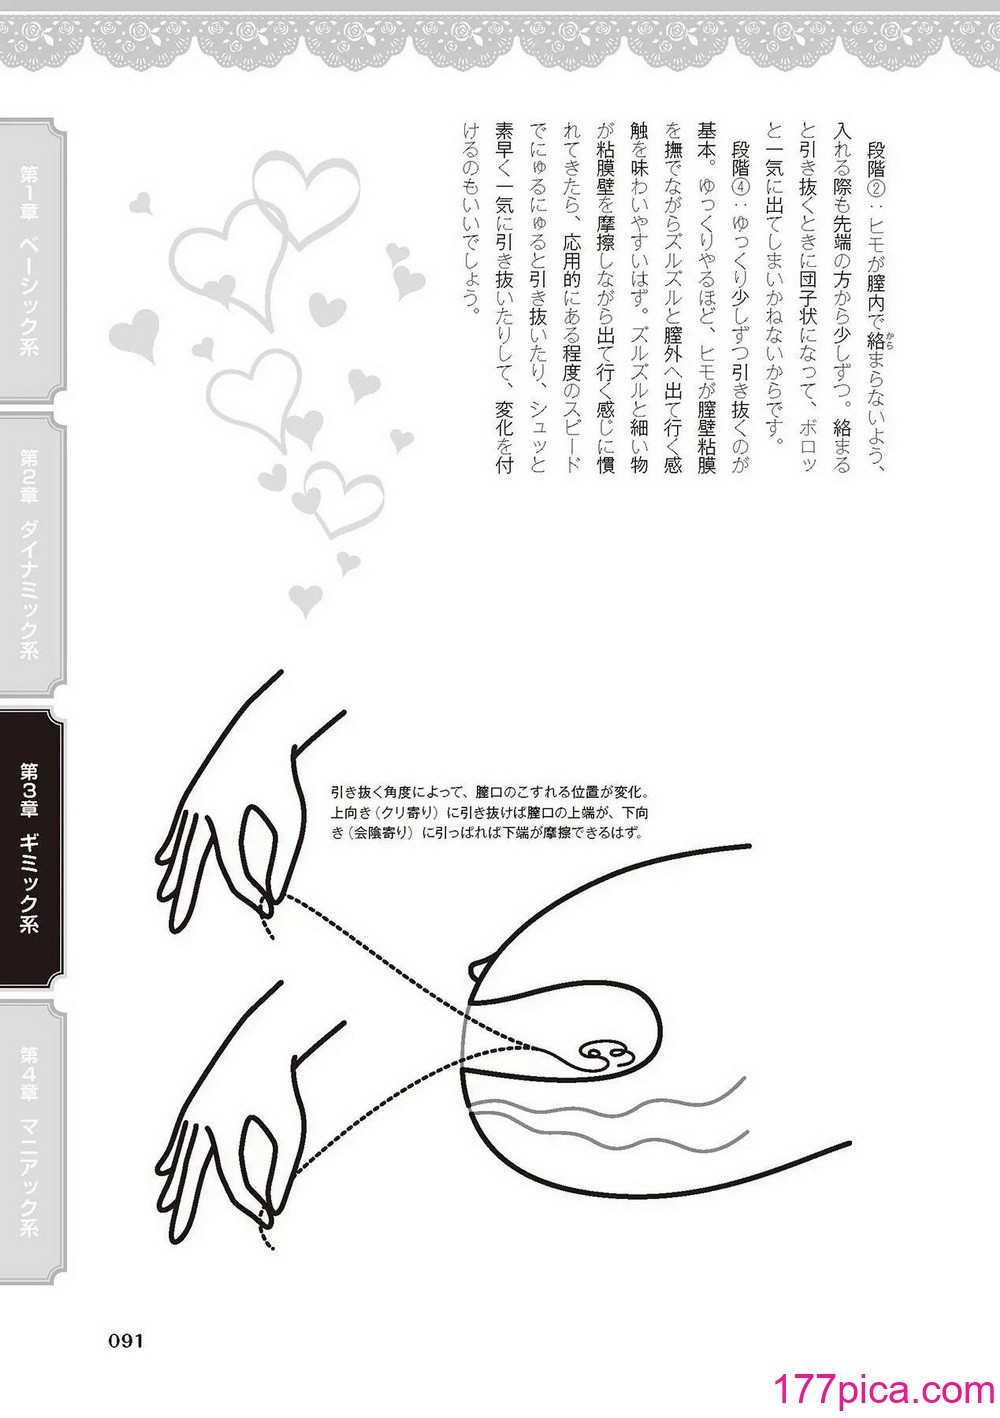 段階②：ヒモが膣内で絡まらないよう、
から
入れる際も先端の方から少しずつ。絡まる
と引き抜くときに団子状になって、ボロッ
と一気に出てしまいかねないからです。
段階④：ゆっくり少しずつ引き抜くのが
基本。ゆっくりやるほど、ヒモが膣壁粘膜
を撫でながらズルズルと膣外へ出て行く感
触を味わいやすいはず。ズルズルと細い物
が粘膜壁を摩擦しながら出て行く感じに慣
れてきたら、応用的にある程度のスピード
でにゅるにゅると引き抜いたり、シュッと
素早く一気に引き抜いたりして、変化を付
けるのもいいでしょう。
第1章 ベーシック系
第2章 ダイナミック系
第3章 ギミック系
第4章 マニアック系
引き抜く角度によって、膣口のこすれる位置が変化。
上向き（クリ寄り）に引き抜けば膣口の上端が、下向
き（会陰寄り）に引っぱれば下端が摩擦できるはず。
091
177pica.com